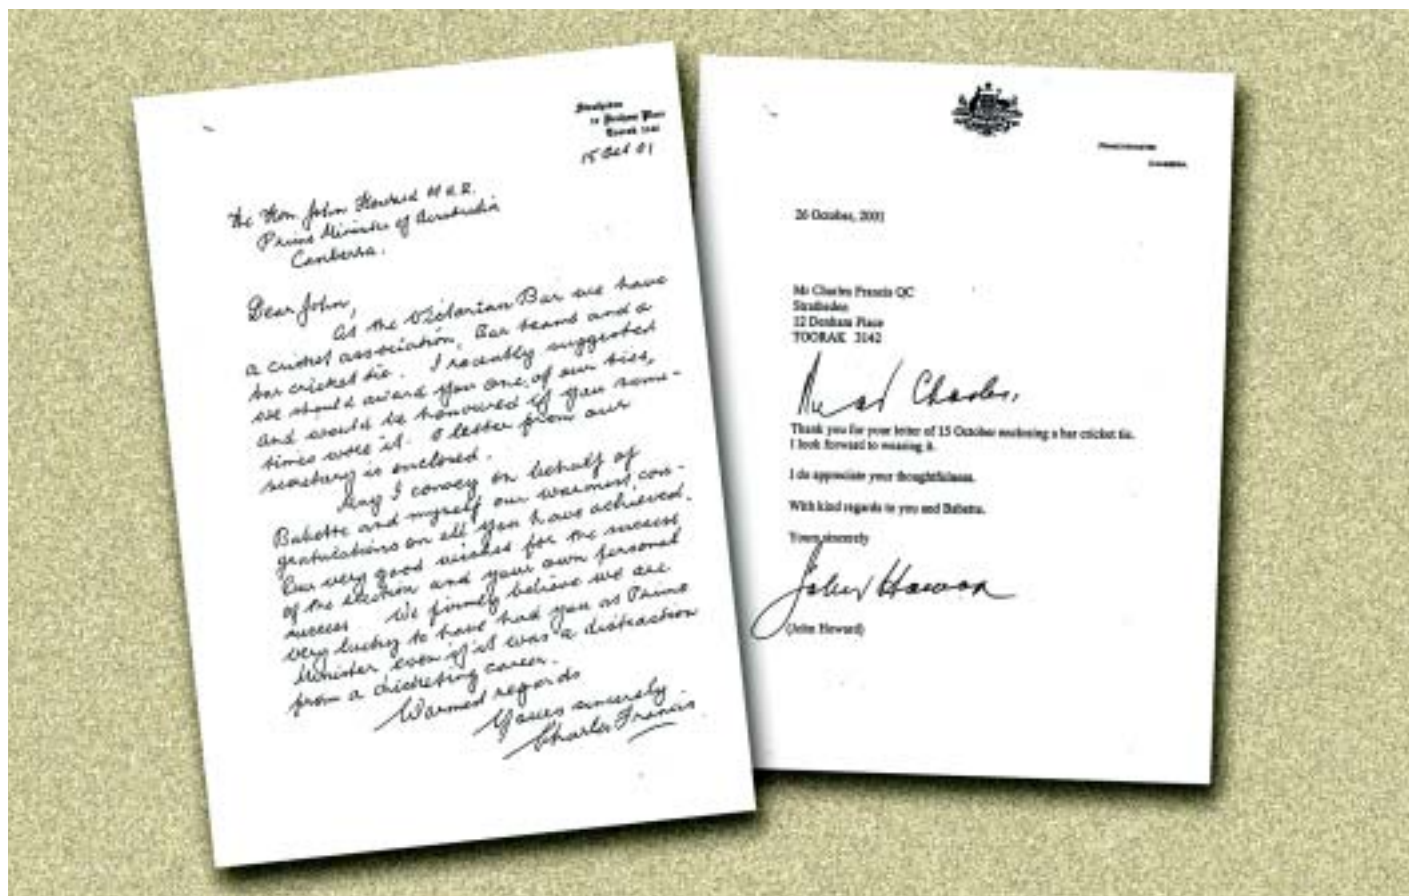 Stratheden
12 Denham Place
Toorak 3142
15 Oct 01
The Hon. John Howard M.H.R.
Prime Minister of Australia
Canberra.
Dear John,
At the Victorian Bar we have
a cricket association, Bar teams and a
bar cricket tie. I recently suggested
we should award you one of our ties,
and would be honoured if you some-
times wore it. A letter from our
secretary is enclosed.
May I convey on behalf of
Babette and myself our warmest con-
gratulations on all you have achieved.
Our very good wishes for the success
of the election and your own personal
success. We firmly believe we are
very lucky to have had you as Prime
Minister even if it was a distraction
from a cricketing career.
Warmest regards
Yours sincerely
Charles Francis
PRIME MINISTER
CANBERRA
26 October, 2001
Mr Charles Francis QC
Stratheden
12 Denham Place
TOORAK 3142
Charles,
Thank you for your letter of 15 October enclosing a bar cricket tie.
I look forward to wearing it.
I do appreciate your thoughtfulness.
With kind regards to you and Babette.
Yours sincerely
John Howard
(John Howard)